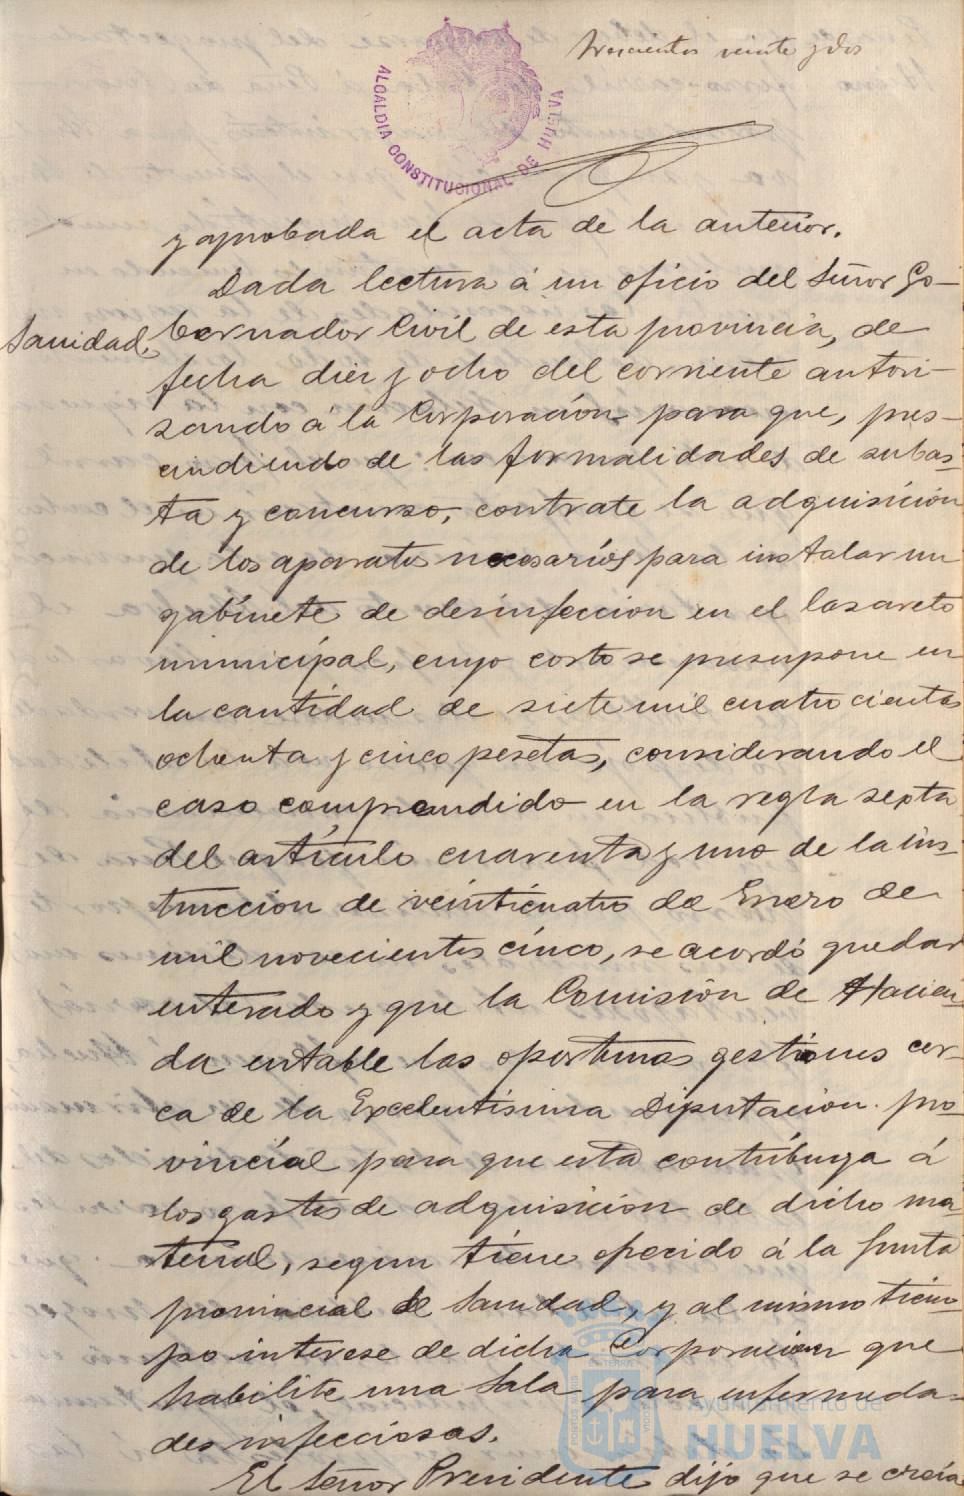 Trescientos veinte y dos
ALCALDIA CONSTITUCIONAL DE HUELVA
y aprobada el acta de la anterior.
Dada lectura á un oficio del Señor Go-
Sanidad.
bernador Civil de esta provincia, de
fecha diez y ocho del corriente autori-
zando á la Corporación para que, pres-
cindiendo de las formalidades de subas-
ta y concurso, contrate la adquisición
de los aparatos necesarios para instalar un
gabinete de desinfeccion en el lazareto
municipal, cuyo costo se presupone en
la cantidad de siete mil cuatrocientas
ochenta y cinco pesetas, considerando el
caso comprendido en la regla septa
del artículo cuarenta y uno de la ins-
truccion de veinticuatro de Enero de
mil novecientos cinco, se acordó quedar
enterado y que la Comisión de Hacien-
da entable las oportunas gestiones cer-
ca de la Excelentísima Diputacion pro-
vincial para que esta contribuya á
los gastos de adquisicion de dicho ma-
terial, segun tiene ofrecido á la Junta
provincial de Sanidad, y al mismo tiem-
po interese de dicha Corporacion que
habilite una Sala para enfermeda-
des infecciosas.
El Señor Presidente dijo que se creía
Ayuntamiento de
HUELVA